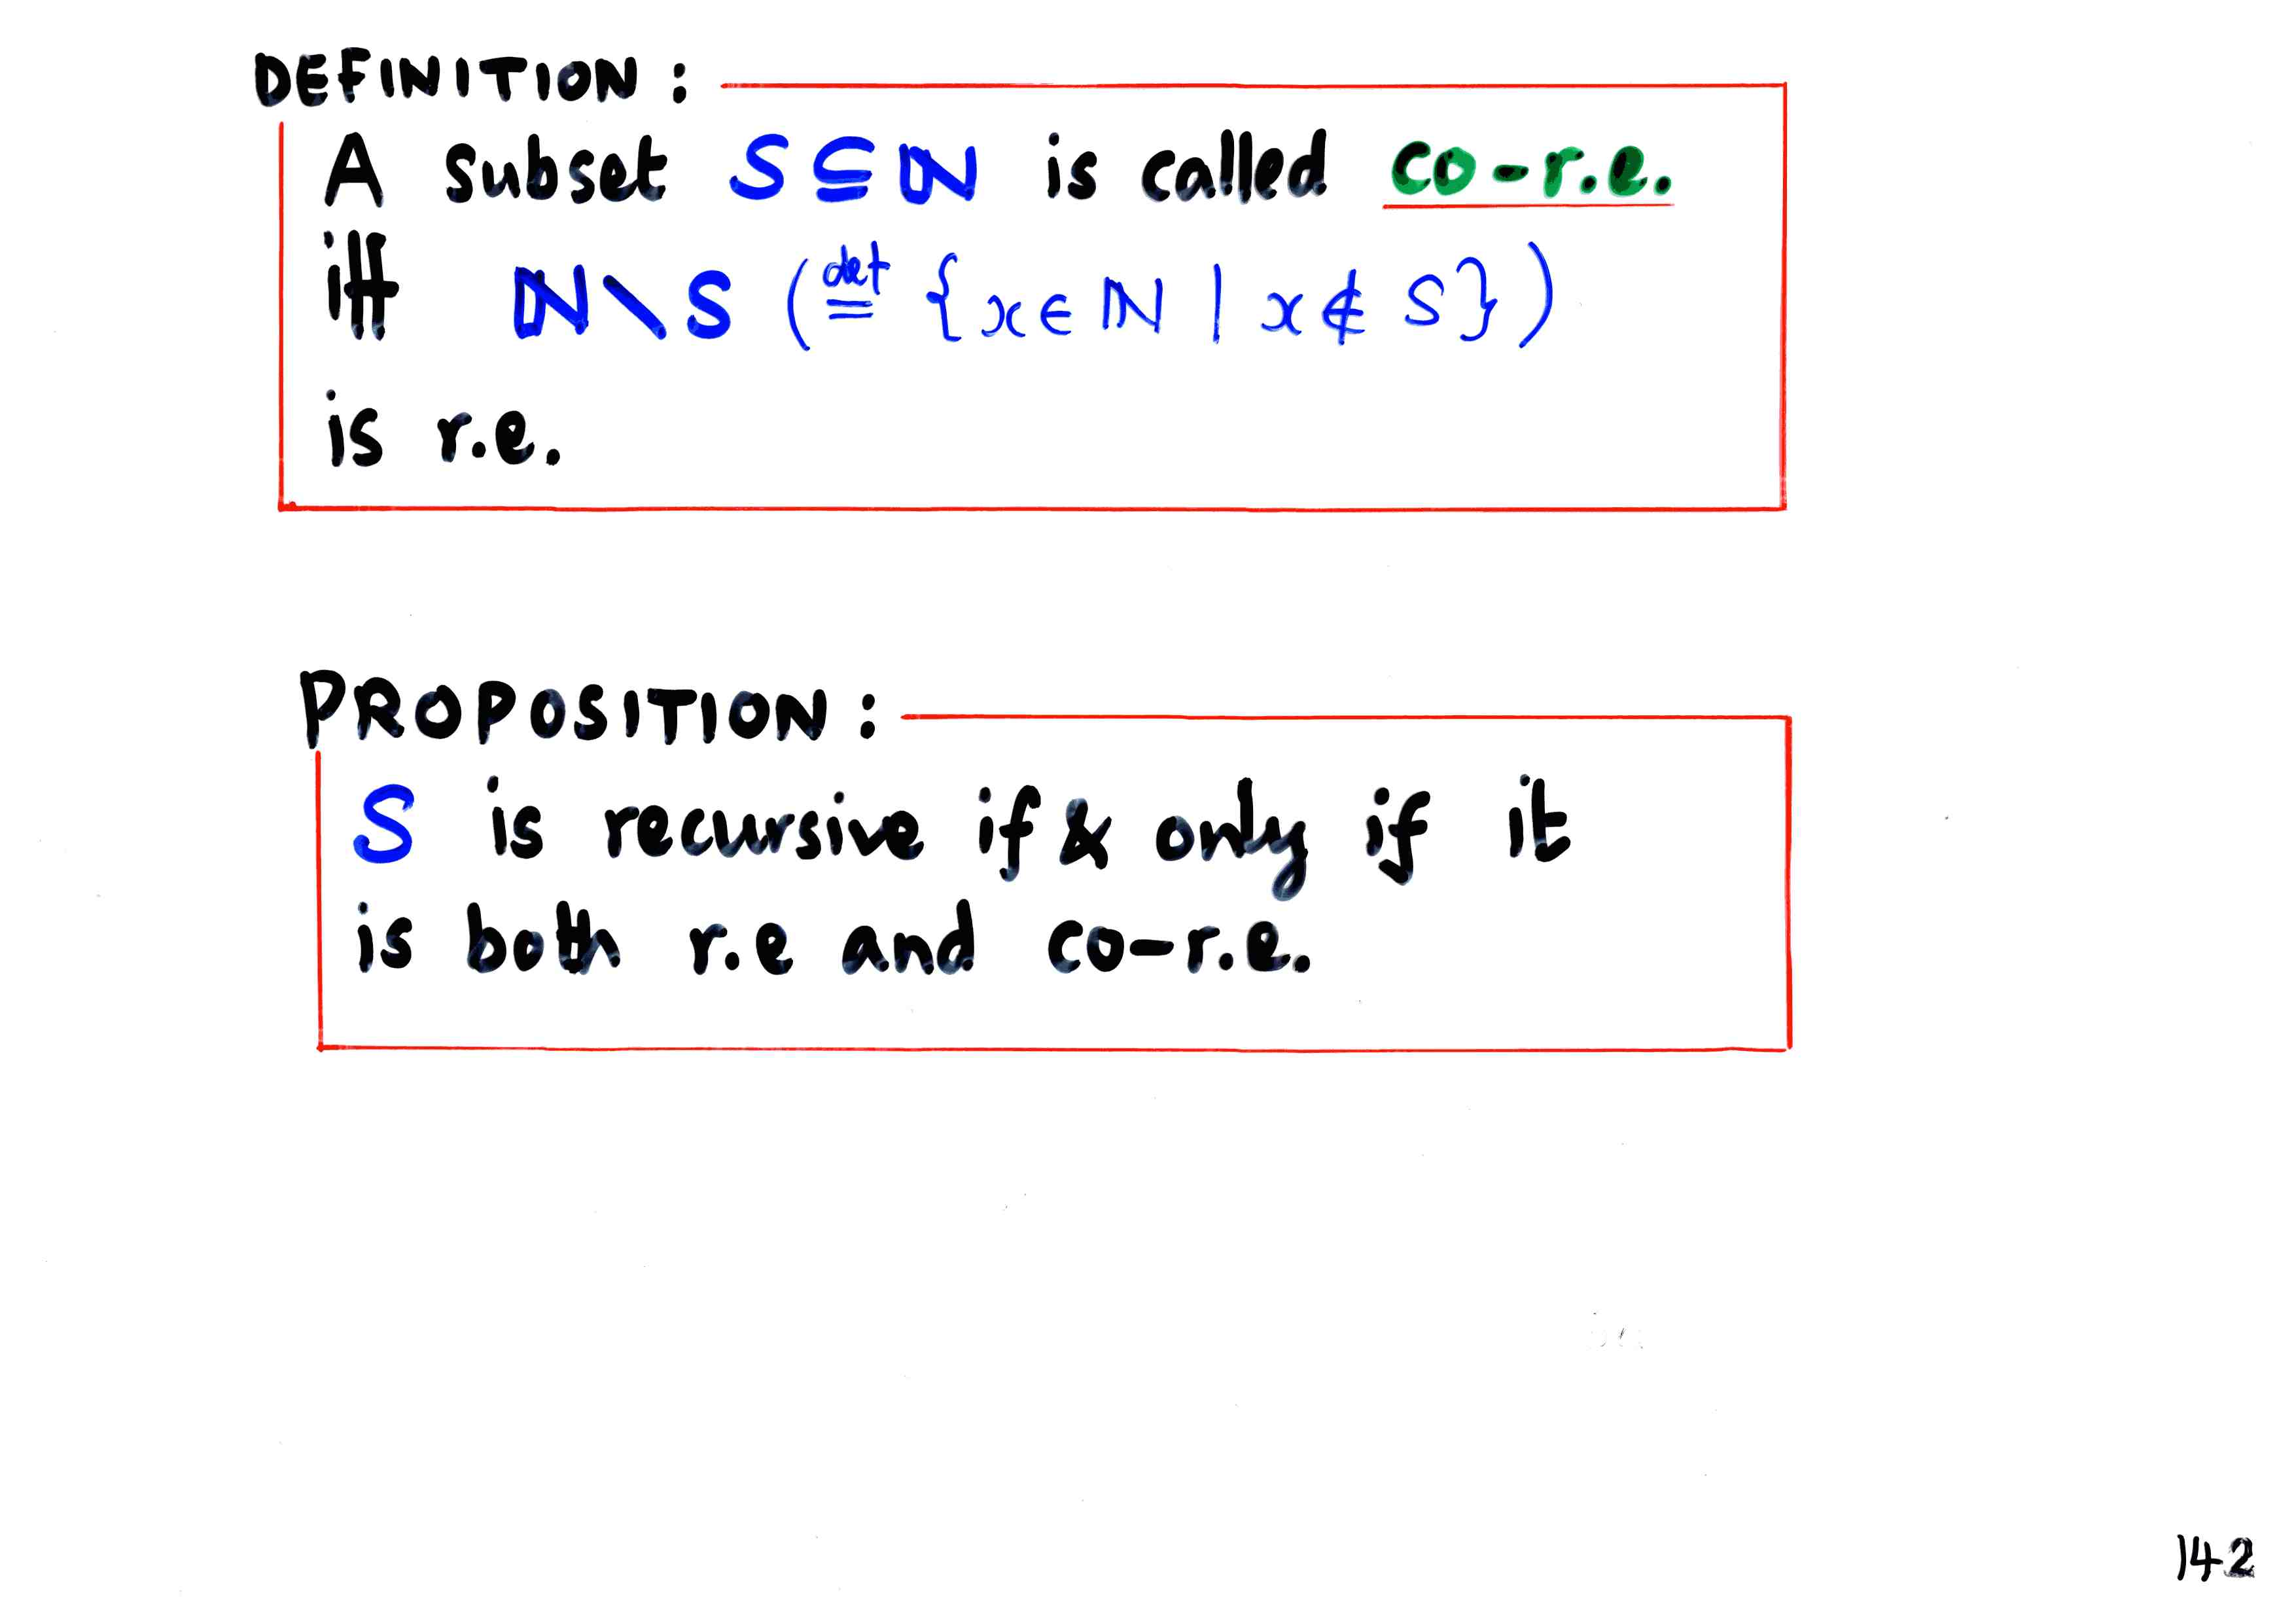 DEFINITION:
A subset S⊆ℕ is called co-r.e.
iff ℕ\S (≝ {x∈ℕ | x∉S})
is r.e.
PROPOSITION:
S is recursive if & only if it
is both r.e and co-r.e.
142